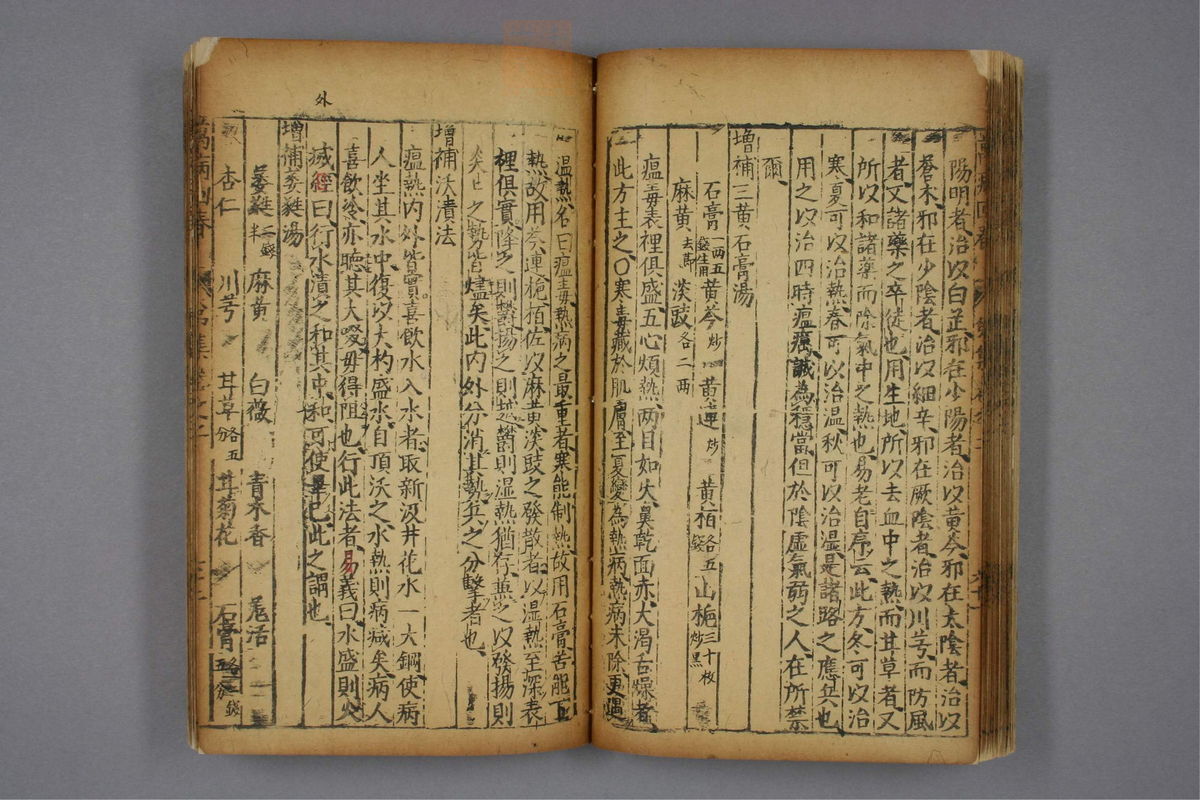 陽明者治以白芷邪在少陽者治以黃芩邪在太陰者治以
蒼朮邪在少陰者治以細辛邪在厥陰者治以川芎而防風
者又諸藥之卒徒也用生地所以去血中之熱而甘草者又
所以和諸藥而除氣中之熱也易老自序云此方冬可以治
寒夏可以治熱春可以治温秋可以治湿是諸路之應兵也
用之以治四時瘟癘誠為穩當但於陰虛氣弱之人在所禁
爾
增補三黃石膏湯
石膏一兩五錢生用 黃芩炒 黃連炒 黃栢各五錢 山梔三十枚炒黑
麻黃去節 淡豉各二兩
瘟毒表裡俱盛五心煩熱两目如火鼻乾面赤大渴舌燥者
此方主之〇寒毒藏於肌膚至夏變為熱病熱病未除更遇
温熱名曰瘟毒熱病之最重者寒能制熱故用石膏苦能下
熱故用芩連梔栢佐以麻黃淡豉之發散者以湿熱至深表
裡俱實降之則欝揚之則越欝則湿熱猶存兼之以發揚則
炎上之勢皆燼矣此内外分消其勢兵之分擊者也
增補沃漬法
瘟熱内外皆實喜飲水入水者取新汲井花水一大鋼使病
人坐其水中復以大杓盛水自頂沃之水熱則病減矣病人
喜飲冷亦聽其大啜毋得阻也行此法者易義曰水盛則火
滅經曰行水漬之和其中和可使畢已此之謂也
外
增補萎蕤湯
萎蕤二錢半 麻黃 白薇 青木香 羌活
杏仁 川芎 甘草各五分 甘菊花 石膏
萬病回春